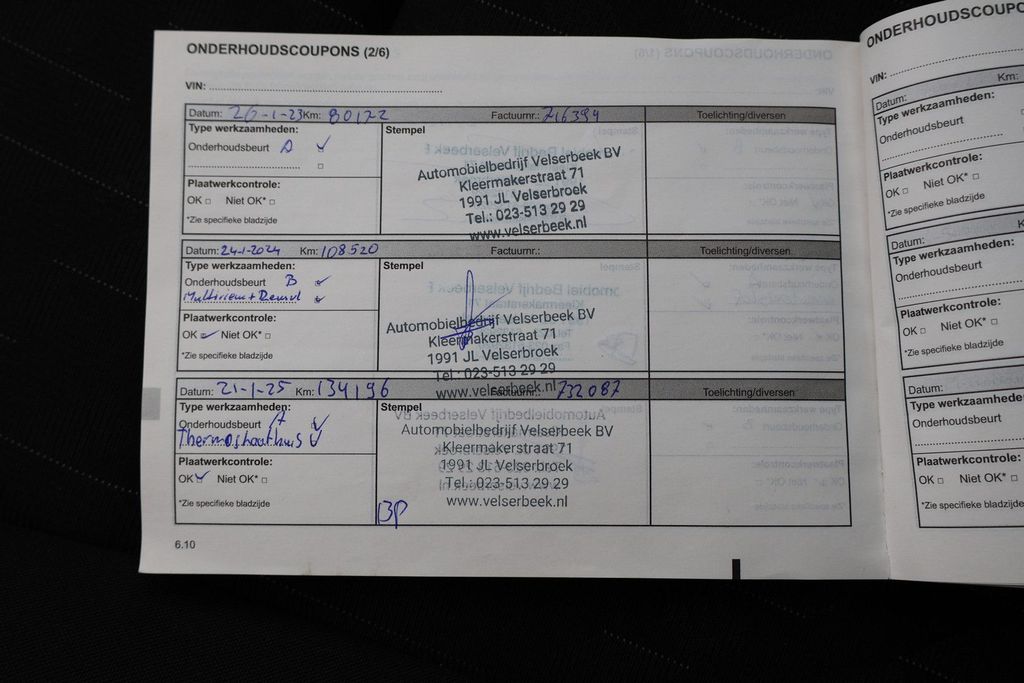 ONDERHOUDSCOUPONS (2/6)
VIN:
Datum: 26-1-23 Km: 80122 Factuurnr.: 716394 Toelichting/diversen
Type werkzaamheden:
Onderhoudsbeurt A
Plaatwerkcontrole:
OK Niet OK*
*Zie specifieke bladzijde
Stempel
Automobielbedrijf Velserbeek BV
Kleermakerstraat 71
1991 JL Velserbroek
Tel.: 023-513 29 29
www.velserbeek.nl
Datum: 24-1-2024 Km: 108520 Factuurnr.: Toelichting/diversen
Type werkzaamheden:
Onderhoudsbeurt B
Multiriem +
Plaatwerkcontrole:
OK Niet OK*
*Zie specifieke bladzijde
Stempel
Automobielbedrijf Velserbeek BV
Kleermakerstraat 71
1991 JL Velserbroek
Tel.: 023-513 29 29
www.velserbeek.nl
Datum: 21-1-25 Km: 134196 Factuurnr.: 732087 Toelichting/diversen
Type werkzaamheden:
Onderhoudsbeurt A
Thermostaathuis
Plaatwerkcontrole:
OK Niet OK*
*Zie specifieke bladzijde
Stempel
Automobielbedrijf Velserbeek BV
Kleermakerstraat 71
1991 JL Velserbroek
Tel.: 023-513 29 29
www.velserbeek.nl
BP
6.10
ONDERHOUDSCOUPO
VIN:
Datum: Km:
Type werkzaamheden:
Onderhoudsbeurt
Plaatwerkcontrole:
OK Niet OK*
*Zie specifieke bladzijde
Datum:
Type werkzaamheden:
Onderhoudsbeurt
Plaatwerkcontrole:
OK Niet OK*
*Zie specifieke bladzijde
Datum:
Type werkzaamhede
Onderhoudsbeurt
Plaatwerkcontrole:
OK Niet OK*
*Zie specifieke bladzijde